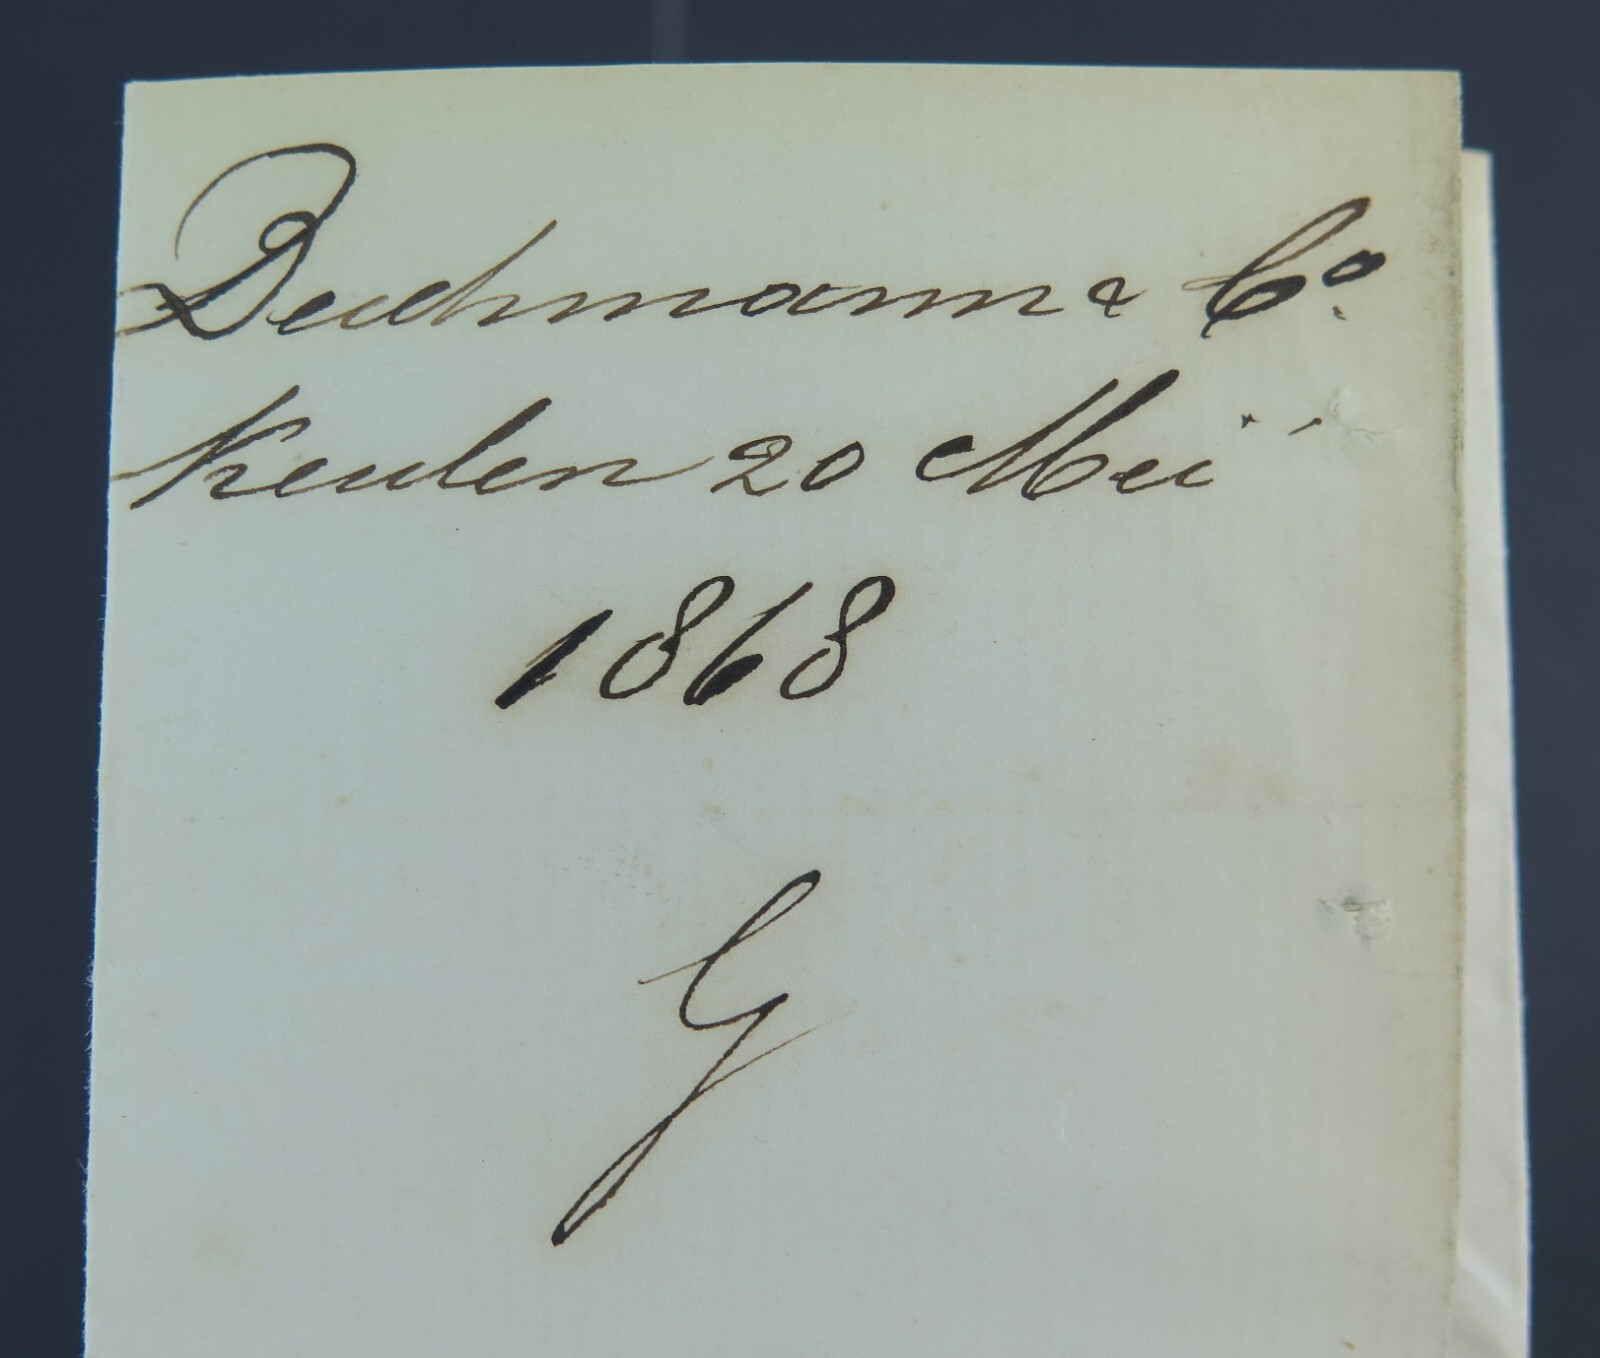 Deichmann & Co.
Keulen 20 Mei
1868
G